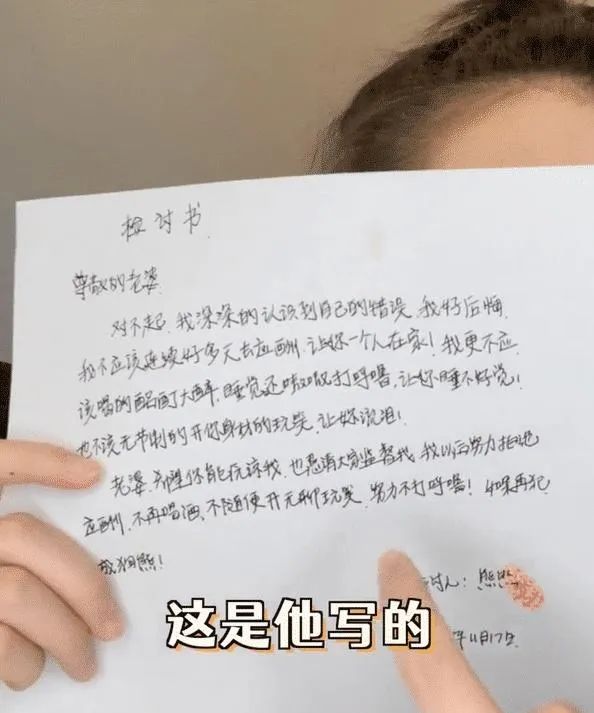 检讨书
尊敬的老婆
对不起,我深深的认识到自己的错误,我好后悔
我不应该连续好多天去应酬,让你一个人在家!我更不应
该喝的酩酊大醉,睡觉还呼呼打呼噜,让你睡不好觉!
也不该无节制的开你身材的玩笑,让你流泪!
老婆,希望你能原谅我,也恳请大家监督我,我以后努力拒绝
应酬,不再喝酒,不随便开无聊玩笑,努力不打呼噜!如果再犯
狗熊!
讨人:熊
年11月17日
这是他写的